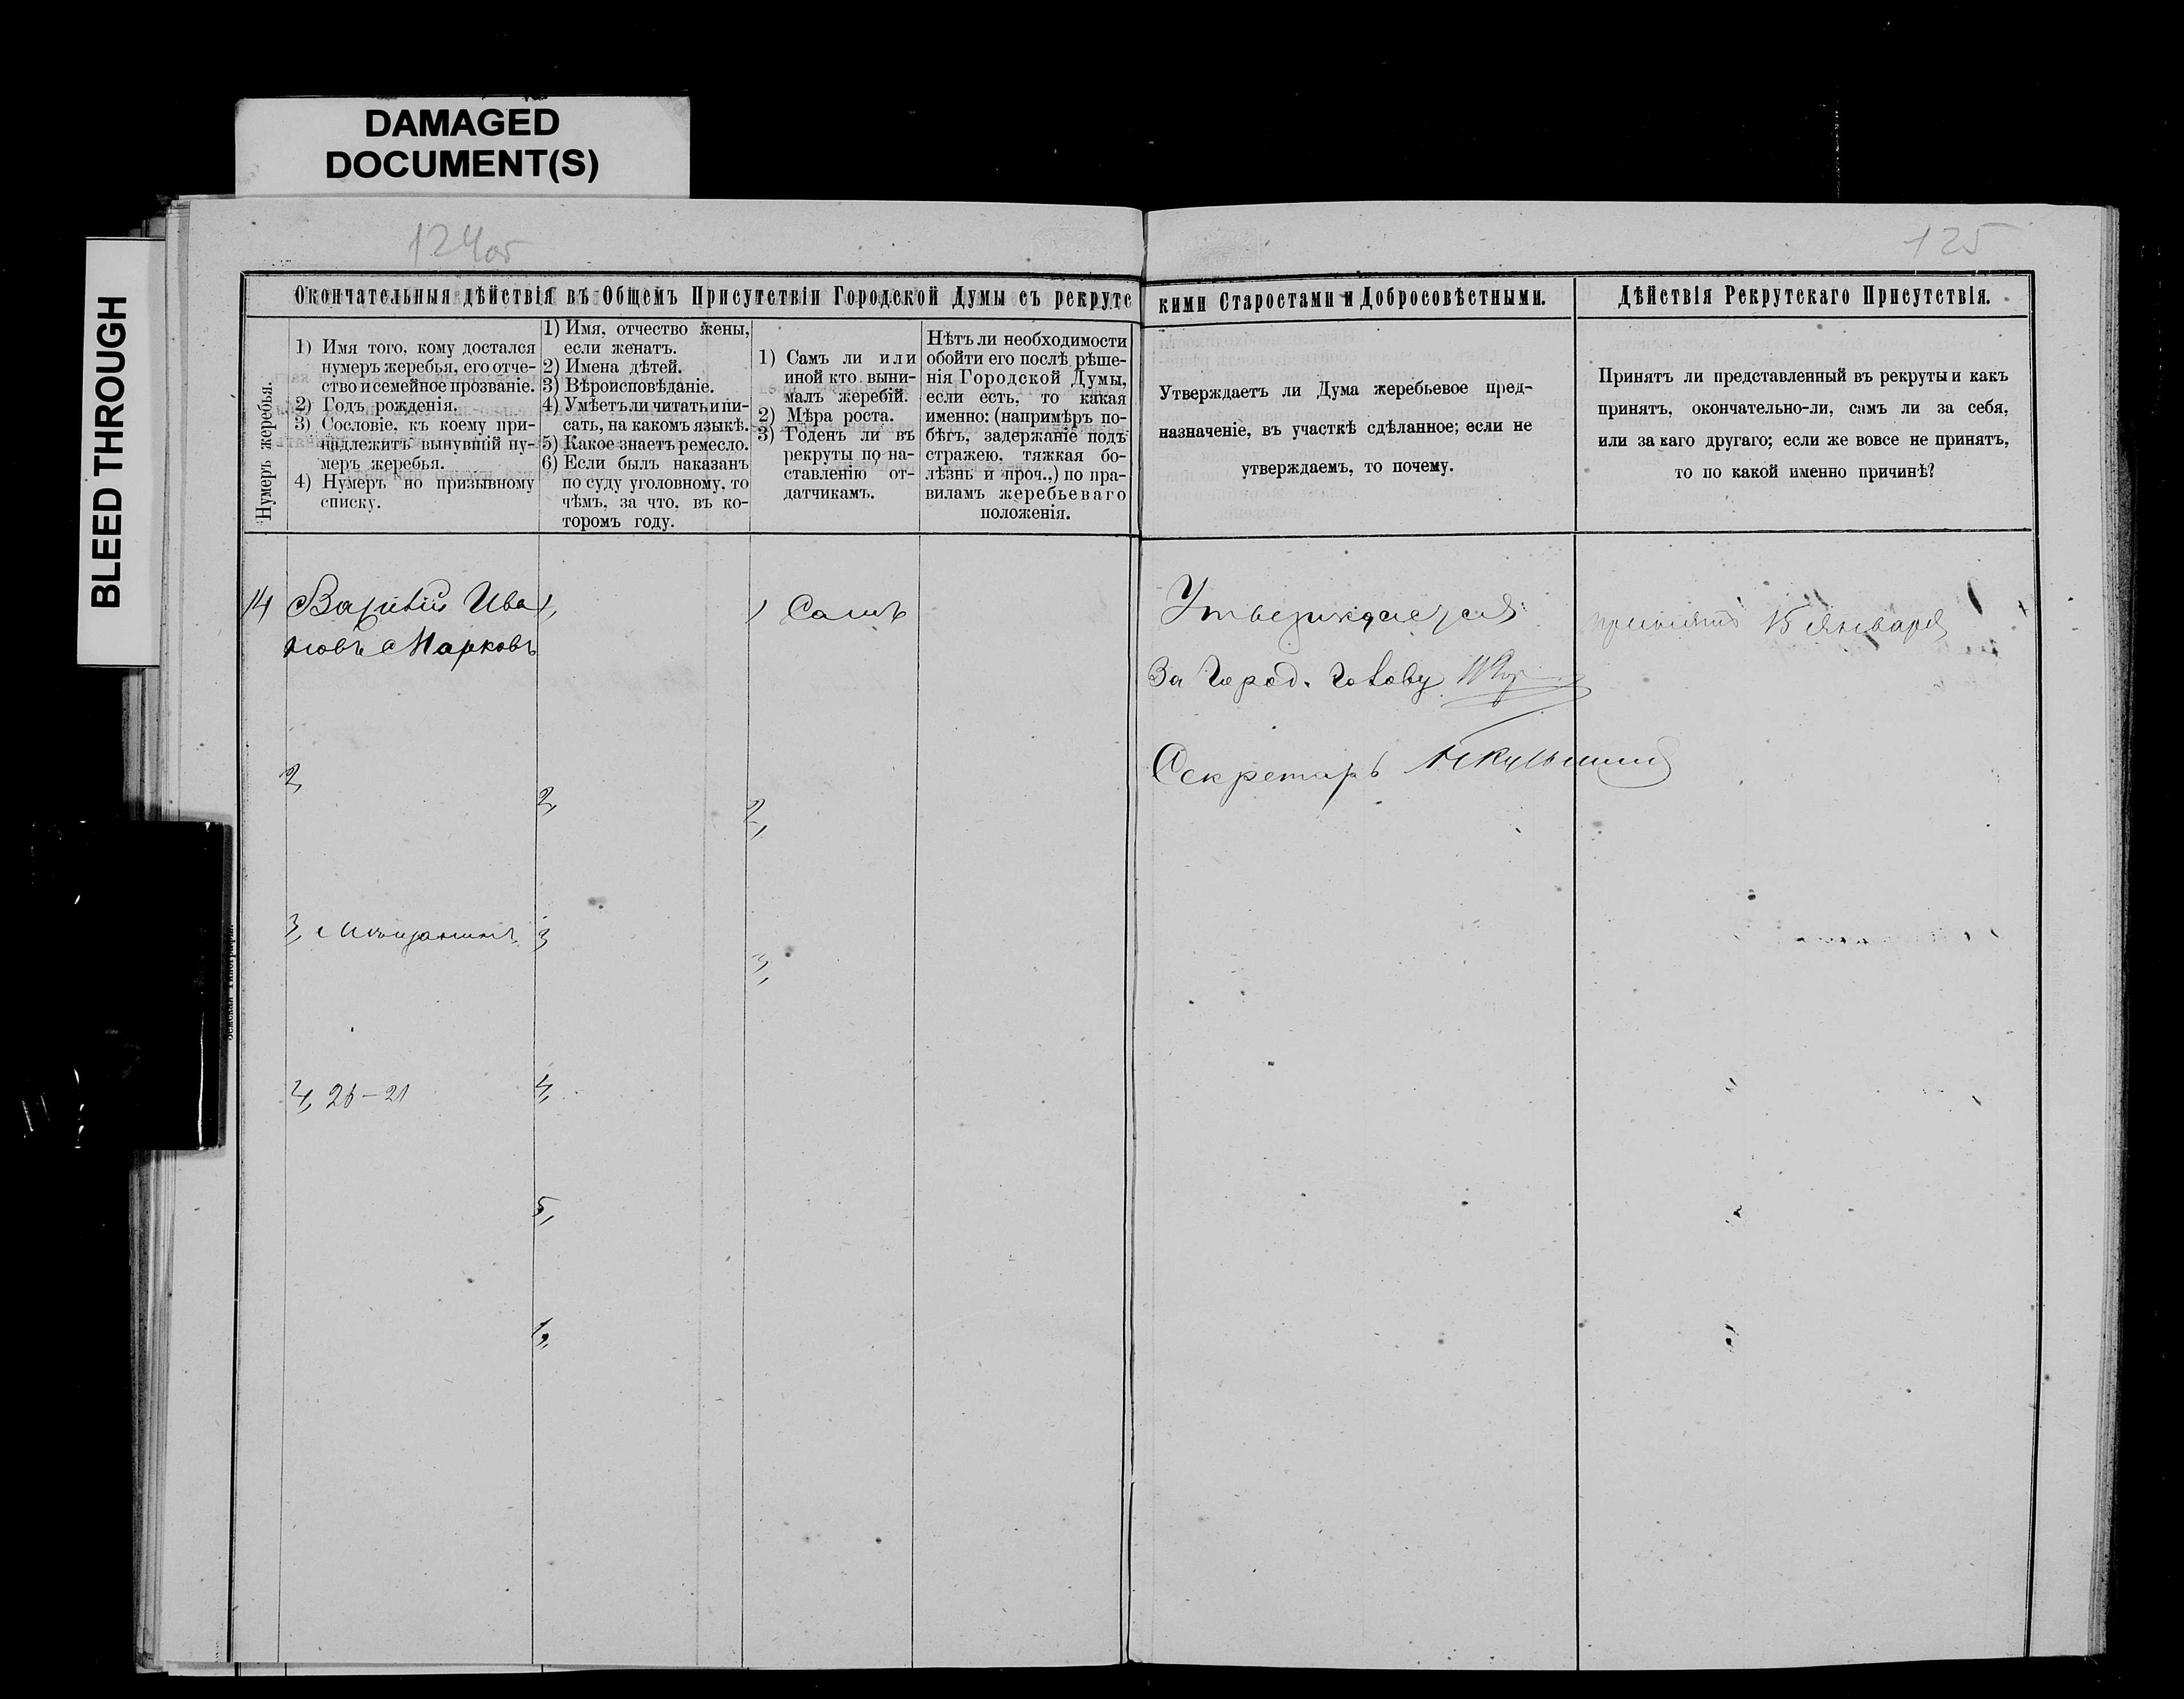 DAMAGED
DOCUMENT(S)
BLEED THROUGH
124об
125
Окончательныя дѣйствія въ Общемъ Присутствіи Городской Думы съ рекрутс
кими Старостами и Добросовѣстными.
Дѣйствія Рекрутскаго Присутствія.
Нумеръ жеребья.
1) Имя того, кому достался
нумеръ жеребья, его отче-
ство и семейное прозваніе.
2) Годъ рожденія.
3) Сословіе, къ коему при-
надлежитъ вынувшій ну-
меръ жеребья.
4) Нумеръ по призывному
списку.
1) Имя, отчество жены,
если женатъ.
2) Имена дѣтей.
3) Вѣроисповѣданіе.
4) Умѣетъ ли читать и пи-
сать, на какомъ языкѣ.
5) Какое знаетъ ремесло.
6) Если былъ наказанъ
по суду уголовному, то
чѣмъ, за что, въ ко-
торомъ году.
1) Самъ ли или
иной кто выни-
малъ жеребій.
2) Мѣра роста.
3) Годенъ ли въ
рекруты по на-
ставленію от-
датчикамъ.
Нѣтъ ли необходимости
обойти его послѣ рѣше-
нія Городской Думы,
если есть, то какая
именно: (напримѣръ по-
бѣгъ, задержаніе подъ
стражею, тяжкая бо-
лѣзнь и проч.,) по пра-
виламъ жеребьеваго
положенія.
Утверждаетъ ли Дума жеребьевое пред-
назначеніе, въ участкѣ сдѣланное; если не
утверждаемъ, то почему.
Принятъ ли представленный въ рекруты и какъ
принятъ, окончательно-ли, самъ ли за себя,
или за каго другаго; если же вовсе не принятъ,
то по какой именно причинѣ?
14 Ва Ива
новъ Марковъ
2,
3, Мѣщанинъ
4, 26-21
1,
2,
3
4,
5,
1 Самъ
2,
3,
Утверждается
За Город. Голову
Секретарь
принятъ 15 Января
Земская Типографія.